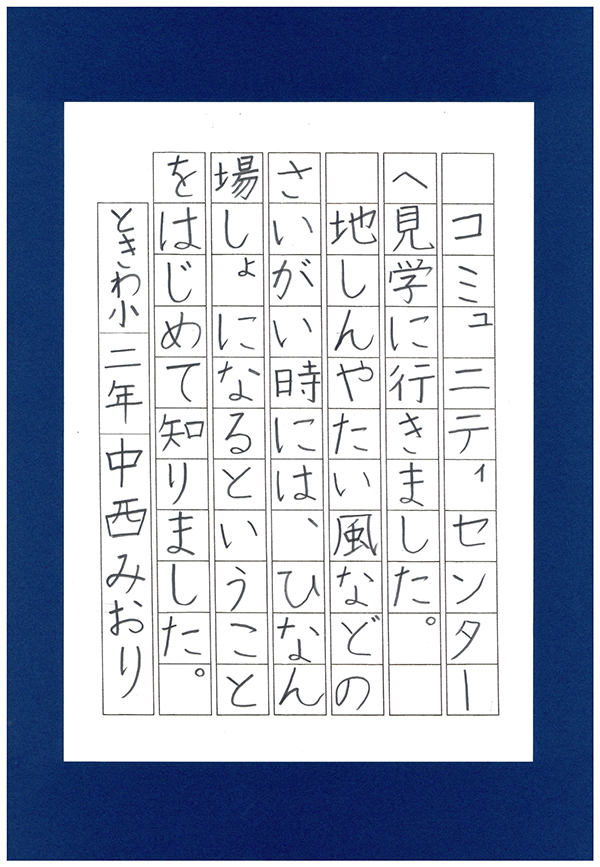 コミュニティセンター
へ見学に行きました。
地しんやたい風などの
さいがい時には、ひなん
場しょになるということ
をはじめて知りました。
ときわ小 二年 中西みおり